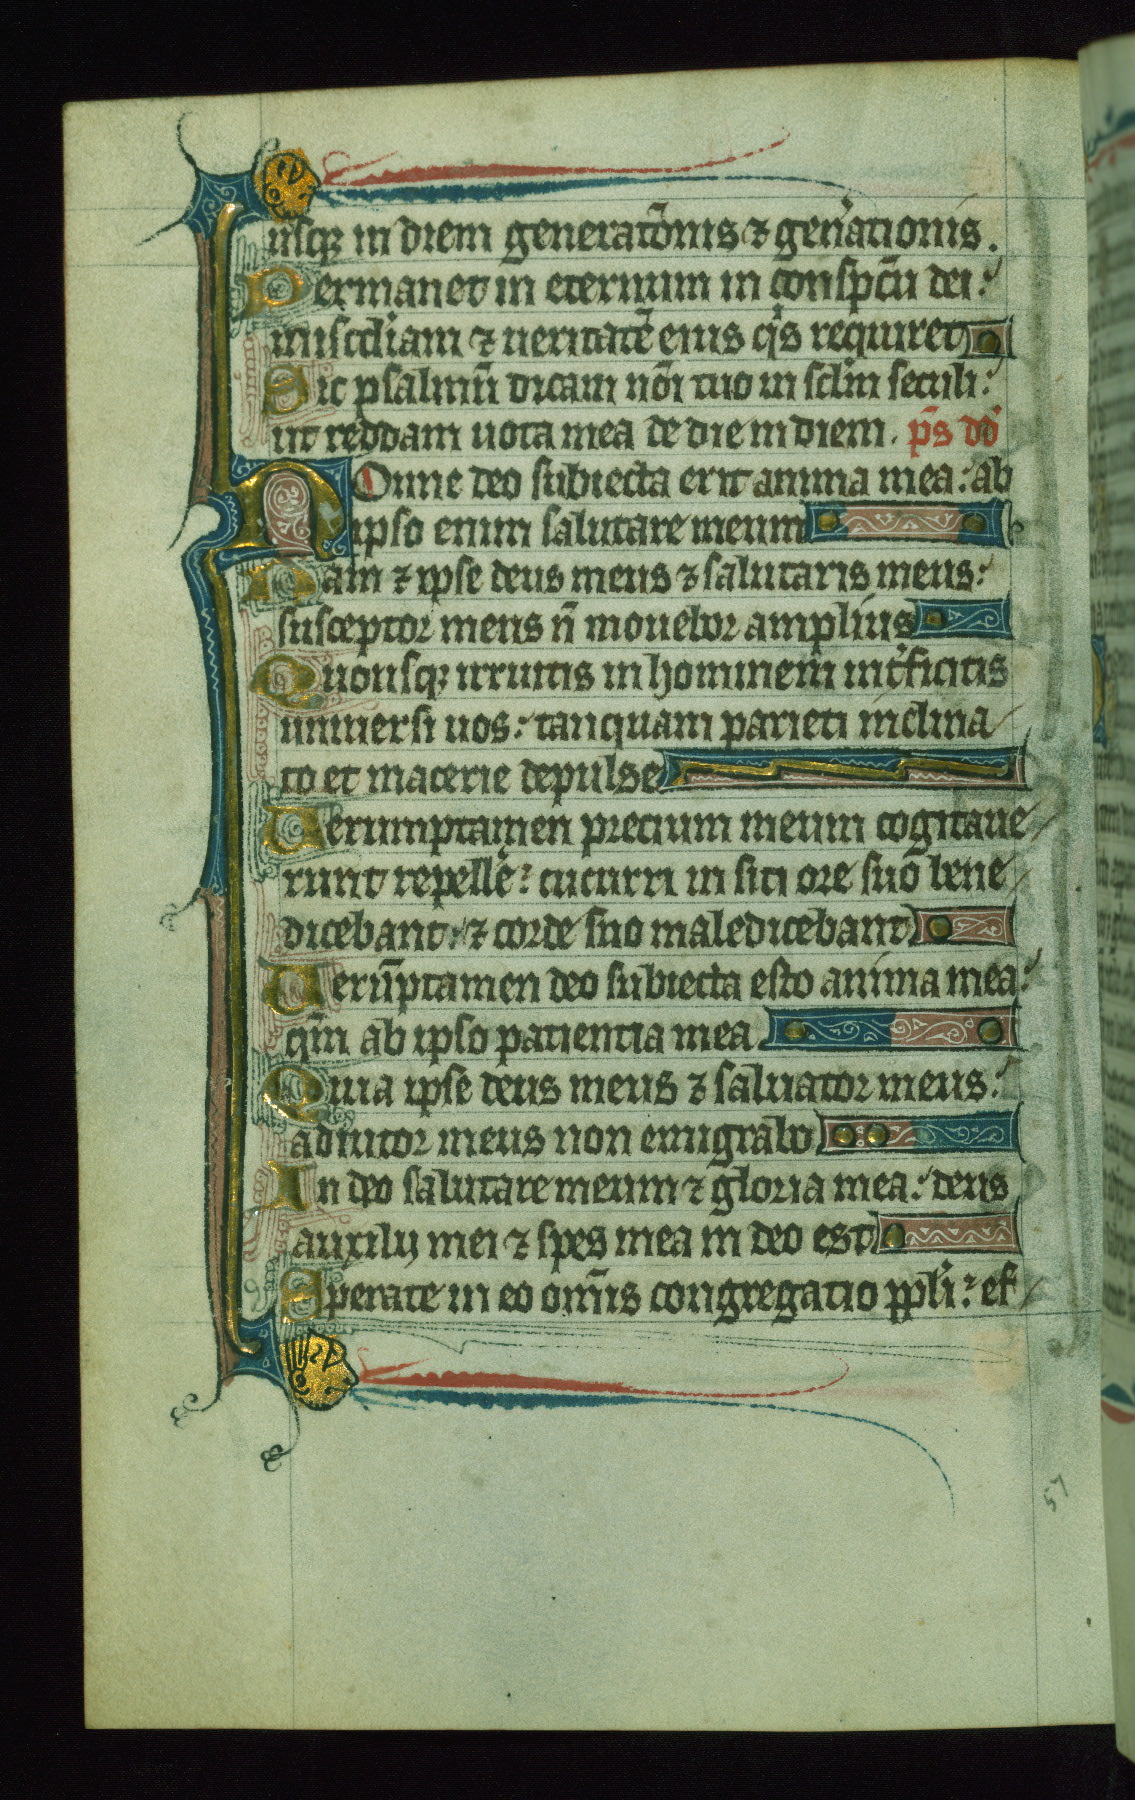 usq; in diem generatōnis ⁊ gen̾ationis.
Permanet in eternum in conspc̄tu dei:
misc̄diam ⁊ ueritatē eius q̇s requiret
Sic psalmū dicam nōi tuo in sclm̄ seculi:
ut reddam uota mea de die in diem. ps̄ dd̄
Nonne deo subiecta erit anima mea: ab
ipso enim salutare meum
Nam ⁊ ipse deus meus ⁊ salutaris meus:
susceptor meus n̄ mouebor amplius
Quousq; irruitis in hominem int̾ficitis
uniuersi uos: tanquam parieti inclina
to et macerie depulse
Uerumptamen precium meum cogitaue
runt repelle̾: cucurri in siti ore suo bene
dicebant ⁊ corde suo maledicebant
Uerūptamen deo subiecta esto anima mea:
qm̄ ab ipso patientia mea
Quia ipse deus meus ⁊ saluator meus:
adiutor meus non emigrabo
In deo salutare meum ⁊ gloria mea: deus
auxilij mei ⁊ spes mea in deo est
Sperate in eo om̄is congregatio ppli: ef
57